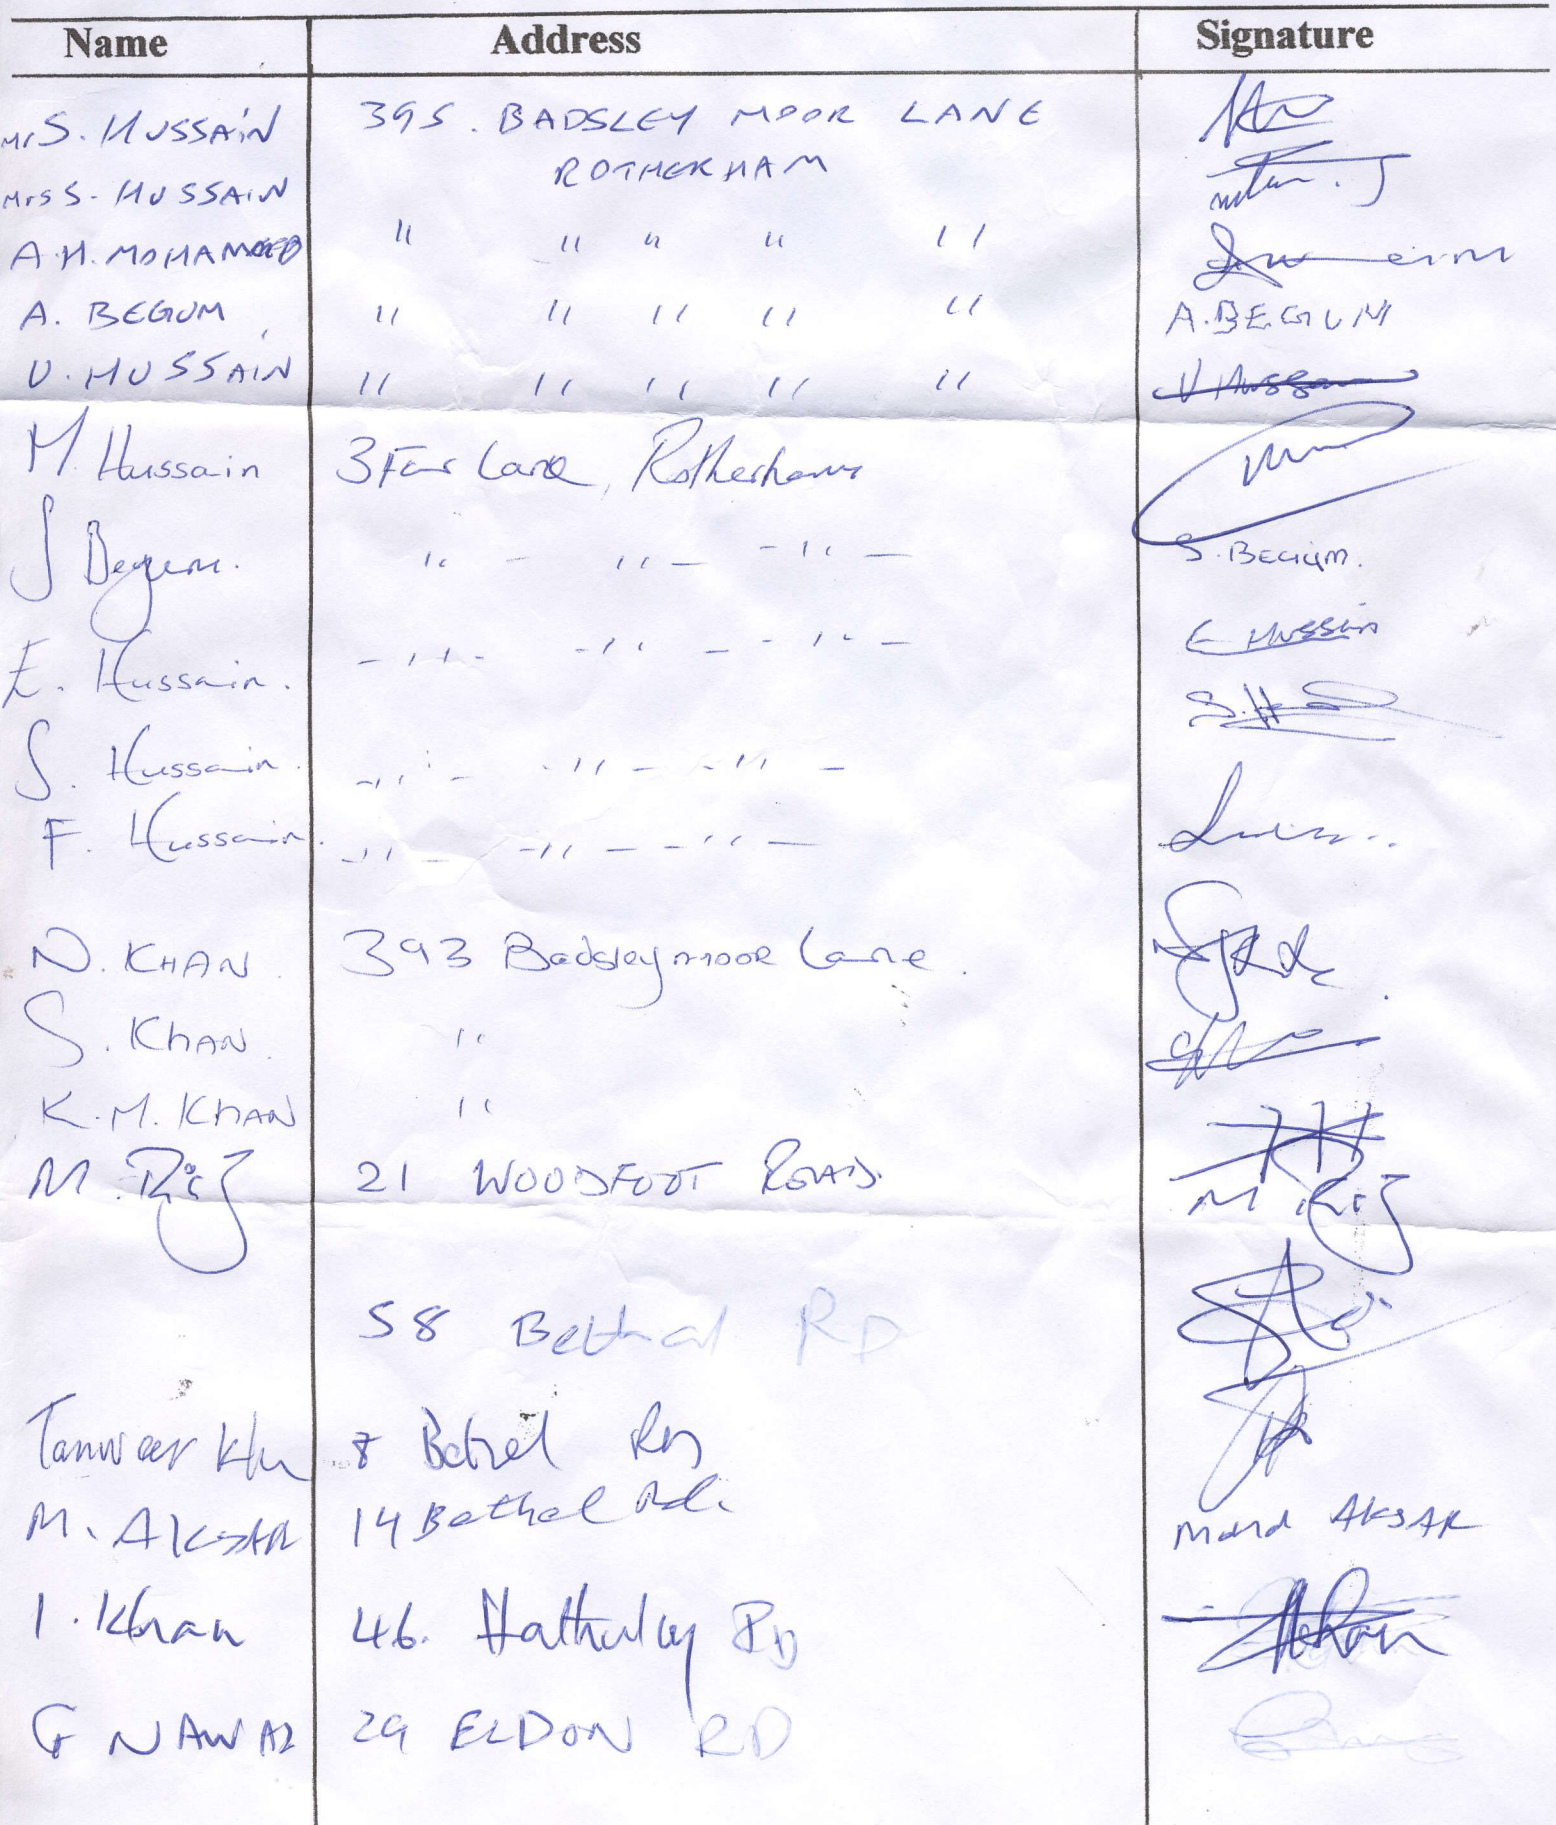 Name Address Signature
Mr S. HUSSAIN 395. BADSLEY MOOR LANE
ROTHERHAM
Mrs S. HUSSAIN
A.H. MOHAMMED " " " " "
A. BEGUM " " " " " A. BEGUM
U. HUSSAIN " " " " " U Hussain
M. Hussain 3 Far Lane, Rotherham
S Begum. " - " - - " - S. BEGUM.
E. Hussain. - " - - " - - " - E HUSSAIN
S. Hussain. - " - - " - - " - S.H
F. Hussain. - " - - " - - " -
N. KHAN. 393 Badsley moor Lane.
S. KHAN. "
K.M. KHAN "
M. Riaz 21 WOODFOOT ROAD. M. Riaz
58 Bethal RD
Tanweer Kh 8 Bethel RD
M. AKSAR 14 Bethel Rd. Mohd AKSAR
I. Khan 46. Hatherley RD Khan
G NAWAZ 29 ELDON RD